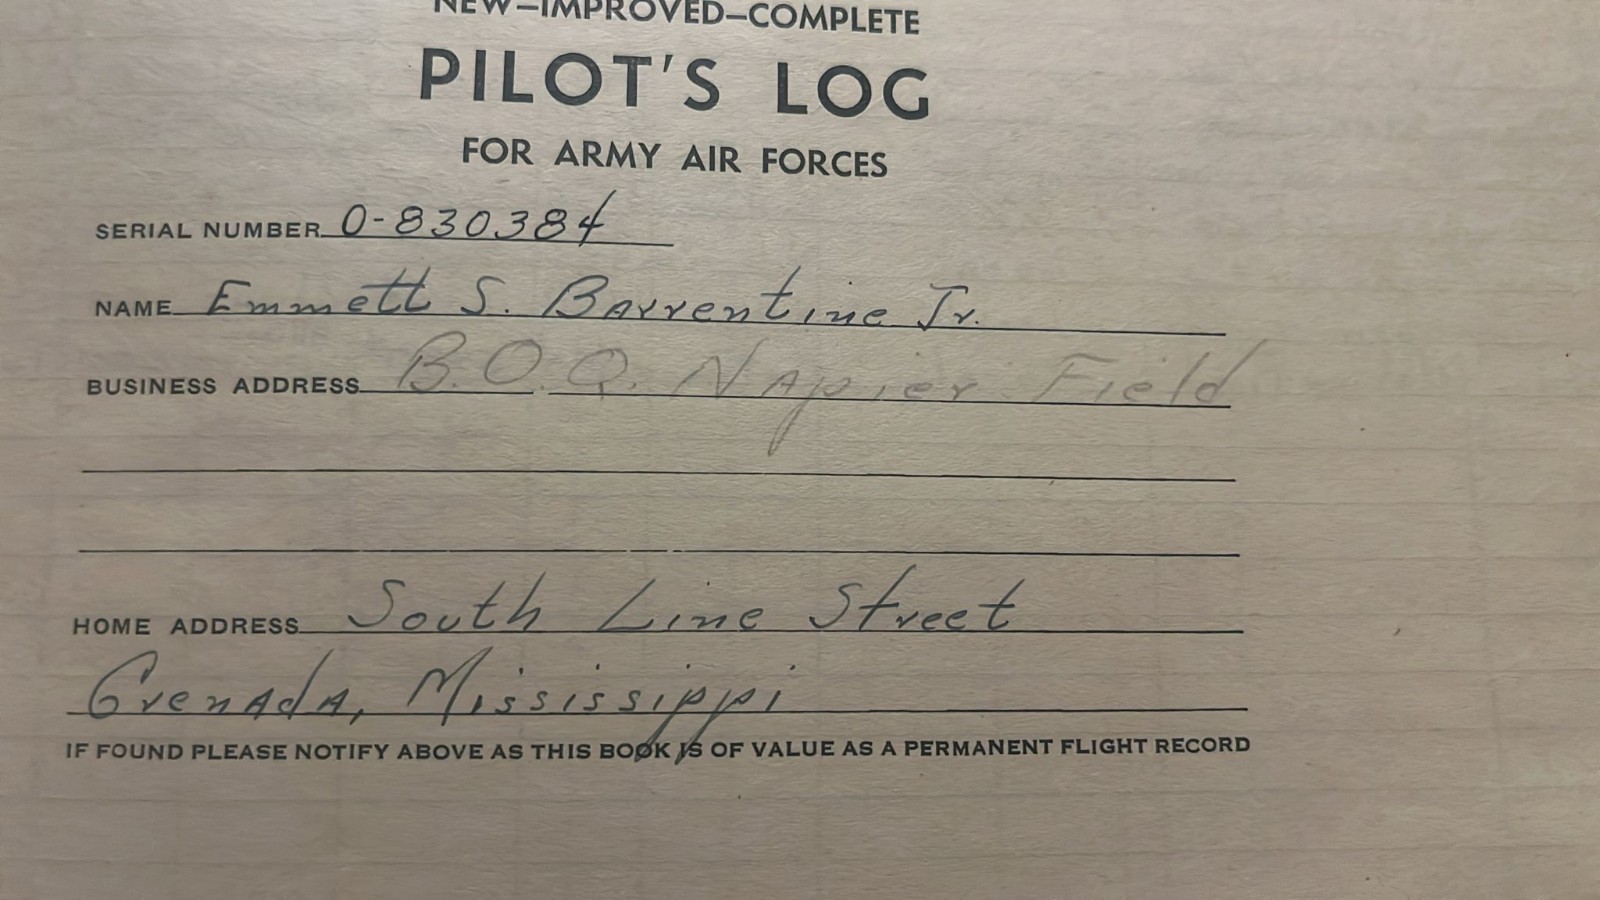 NEW–IMPROVED–COMPLETE
PILOT'S LOG
FOR ARMY AIR FORCES
SERIAL NUMBER 0-830384
NAME Emmett S. Barrentine Jr.
BUSINESS ADDRESS B.O.Q. Napier Field
HOME ADDRESS South Line Street
Grenada, Mississippi
IF FOUND PLEASE NOTIFY ABOVE AS THIS BOOK IS OF VALUE AS A PERMANENT FLIGHT RECORD